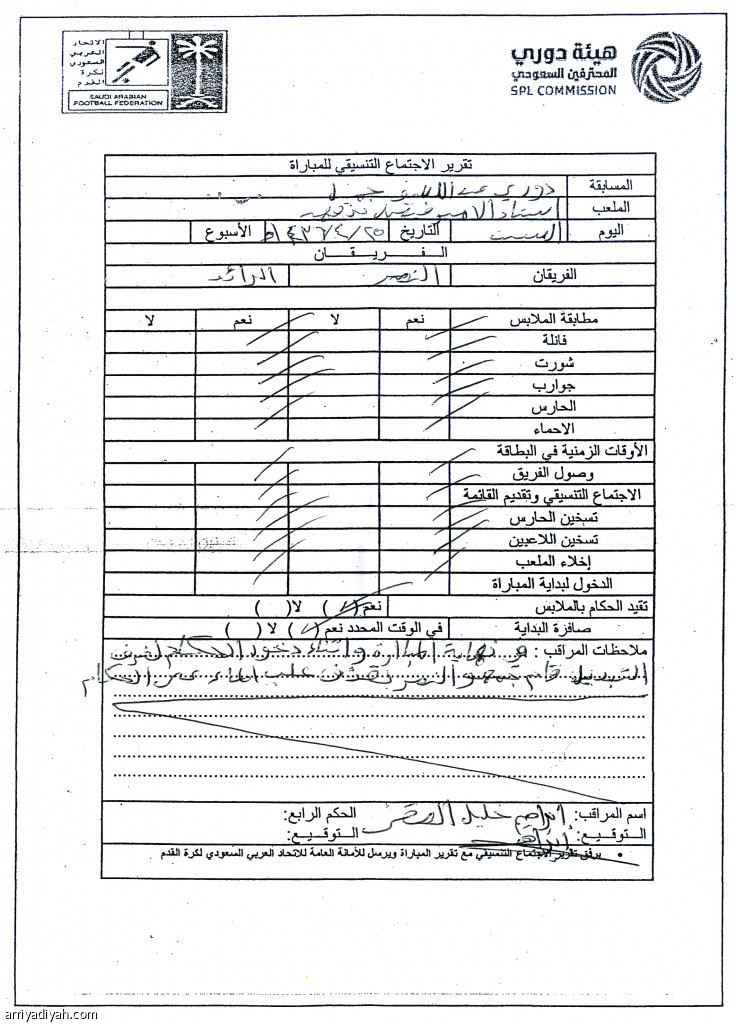 الاتحاد
العربي
السعودي
لكرة
القدم
SAUDI ARABIAN
FOOTBALL FEDERATION
هيئة دوري
المحترفين السعودي
SPL COMMISSION
تقرير الاجتماع التنسيقي للمباراة
المسابقة دوري عبداللطيف جميل
الملعب استاد الامير فيصل بن فهد
اليوم السبت التاريخ ١٤٣٦/٤/٢٥ه الأسبوع
الفريقان
الفريقان النصر الرائد
مطابقة الملابس نعم لا نعم لا
فانلة
شورت
جوارب
الحارس
الاحماء
الأوقات الزمنية في البطاقة
وصول الفريق
الاجتماع التنسيقي وتقديم القائمة
تسخين الحارس
تسخين اللاعبين
إخلاء الملعب
الدخول لبداية المباراة
تقيد الحكام بالملابس نعم ( ) لا ( )
صافرة البداية في الوقت المحدد نعم ( ) لا ( )
ملاحظات المراقب : في نهاية المباراة واثناء دخول الحكام لغرف
التبديل قام جمهور النصر بقذف علب الماء على الحكام
اسم المراقب: ابراهيم خليل الحكم الرابع:
التوقيع: التوقيع:
• يرفق تقرير الاجتماع التنسيقي مع تقرير المباراة ويرسل للأمانة العامة للاتحاد العربي السعودي لكرة القدم
arriyadiyah.com